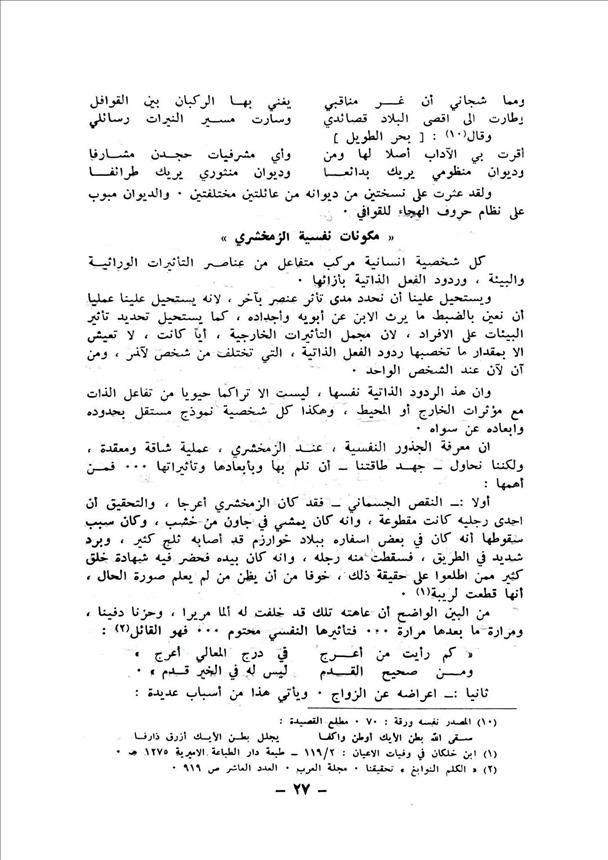 ومما شجاني أن غــــر مناقبي يغني بها الركبان بين القوافل
وطارت الى اقصى البلاد قصائدي وسارت مسير النيرات رسائلي
وقال(١٠) : [ بحر الطويل ]
أقرت بي الآداب أصلا لها ومن وأي مشرفيات حجدن مشارفا
وديوان منظومي يريك بدائعا وديوان منثوري يريك طرائفا
ولقد عثرت على نسختين من ديوانه من عائلتين مختلفتين ٠ والديوان مبوب
على نظام حروف الهجاء للقوافي ٠
« مكونات نفسية الزمخشري »
كل شخصية انسانية مركب متفاعل من عناصر التأثيرات الوراثية
والبيئة ، وردود الفعل الذاتية بأزائها ٠
ويستحيل علينا أن نحدد مدى تأثر عنصر بآخر ، لانه يستحيل علينا عمليا
أن نعين بالضبط ما يرث الابن عن أبويه وأجداده ، كما يستحيل تحديد تأثير
البيئات على الافراد ، لان مجمل التأثيرات الخارجية ، أيا كانت ، لا تعيش
الا بمقدار ما تخصبها ردود الفعل الذاتية ، التي تختلف من شخص لآخر ، ومن
آن لآن عند الشخص الواحد ٠
وان هذ الردود الذاتية نفسها ، ليست الا تراكما حيويا من تفاعل الذات
مع مؤثرات الخارج أو المحيط ، وهكذا كل شخصية نموذج مستقل بحدوده
وابعاده عن سواه ٠
ان معرفة الجذور النفسية ، عنـد الزمخشري ، عملية شاقة ومعقدة ،
ولكننا نحاول ــ جهد طاقتنا ــ أن نلم بها وبأبعادها وتأثيراتها ٠٠٠ فمـن
أهمها :
أولا :ــ النقص الجسماني ــ فقد كان الزمخشري أعرجا ، والتحقيق أن
احدى رجليه كانت مقطوعة ، وانه كان يمشي في جاون من خشب ، وكان سبب
سقوطها أنه كان في بعض اسفاره ببلاد خوارزم قد أصابه ثلج كثير ، وبرد
شديد في الطريق ، فسقطت منه رجله ، وانه كان بيده فحضر فيه شهادة خلق
كثير ممن اطلعوا على حقيقة ذلك ، خوفا من أن يظن من لم يعلم صورة الحال ،
أنها قطعت لريبة(١) ٠
من البين الواضح أن عاهته تلك قد خلفت له ألما مريرا ، وحزنا دفينا ،
ومرارة ما بعدها مرارة ٠٠٠ فتأثيرها النفسي محتوم ٠٠٠ فهو القائل(٢) :
« كم رأيت من أعـرج في درج المعالي أعرج »
ومـن صحيح القـدم ليس له في الخير قدم » ٠
ثانيا :ــ اعراضه عن الزواج ٠ ويأتي هذا من أسباب عديدة :
(١٠) المصدر نفسه ورقة : ٧٠ ٠ مطلع القصيدة :
سـقى الله بطن الأيك أوطن واكفـا يجلل بطـن الأيـك أزرق ذارفـا
(١) ابن خلكان في وفيات الاعيان : ١١٩/٢ ــ طبعة دار الطباعة الاميرية ١٢٧٥ هـ ٠
(٢) « الكلم النوابغ » تحقيقنا ٠ مجلة العرب ٠ العدد العاشر ص ٩١٩ ٠
ــ ٢٧ ــ